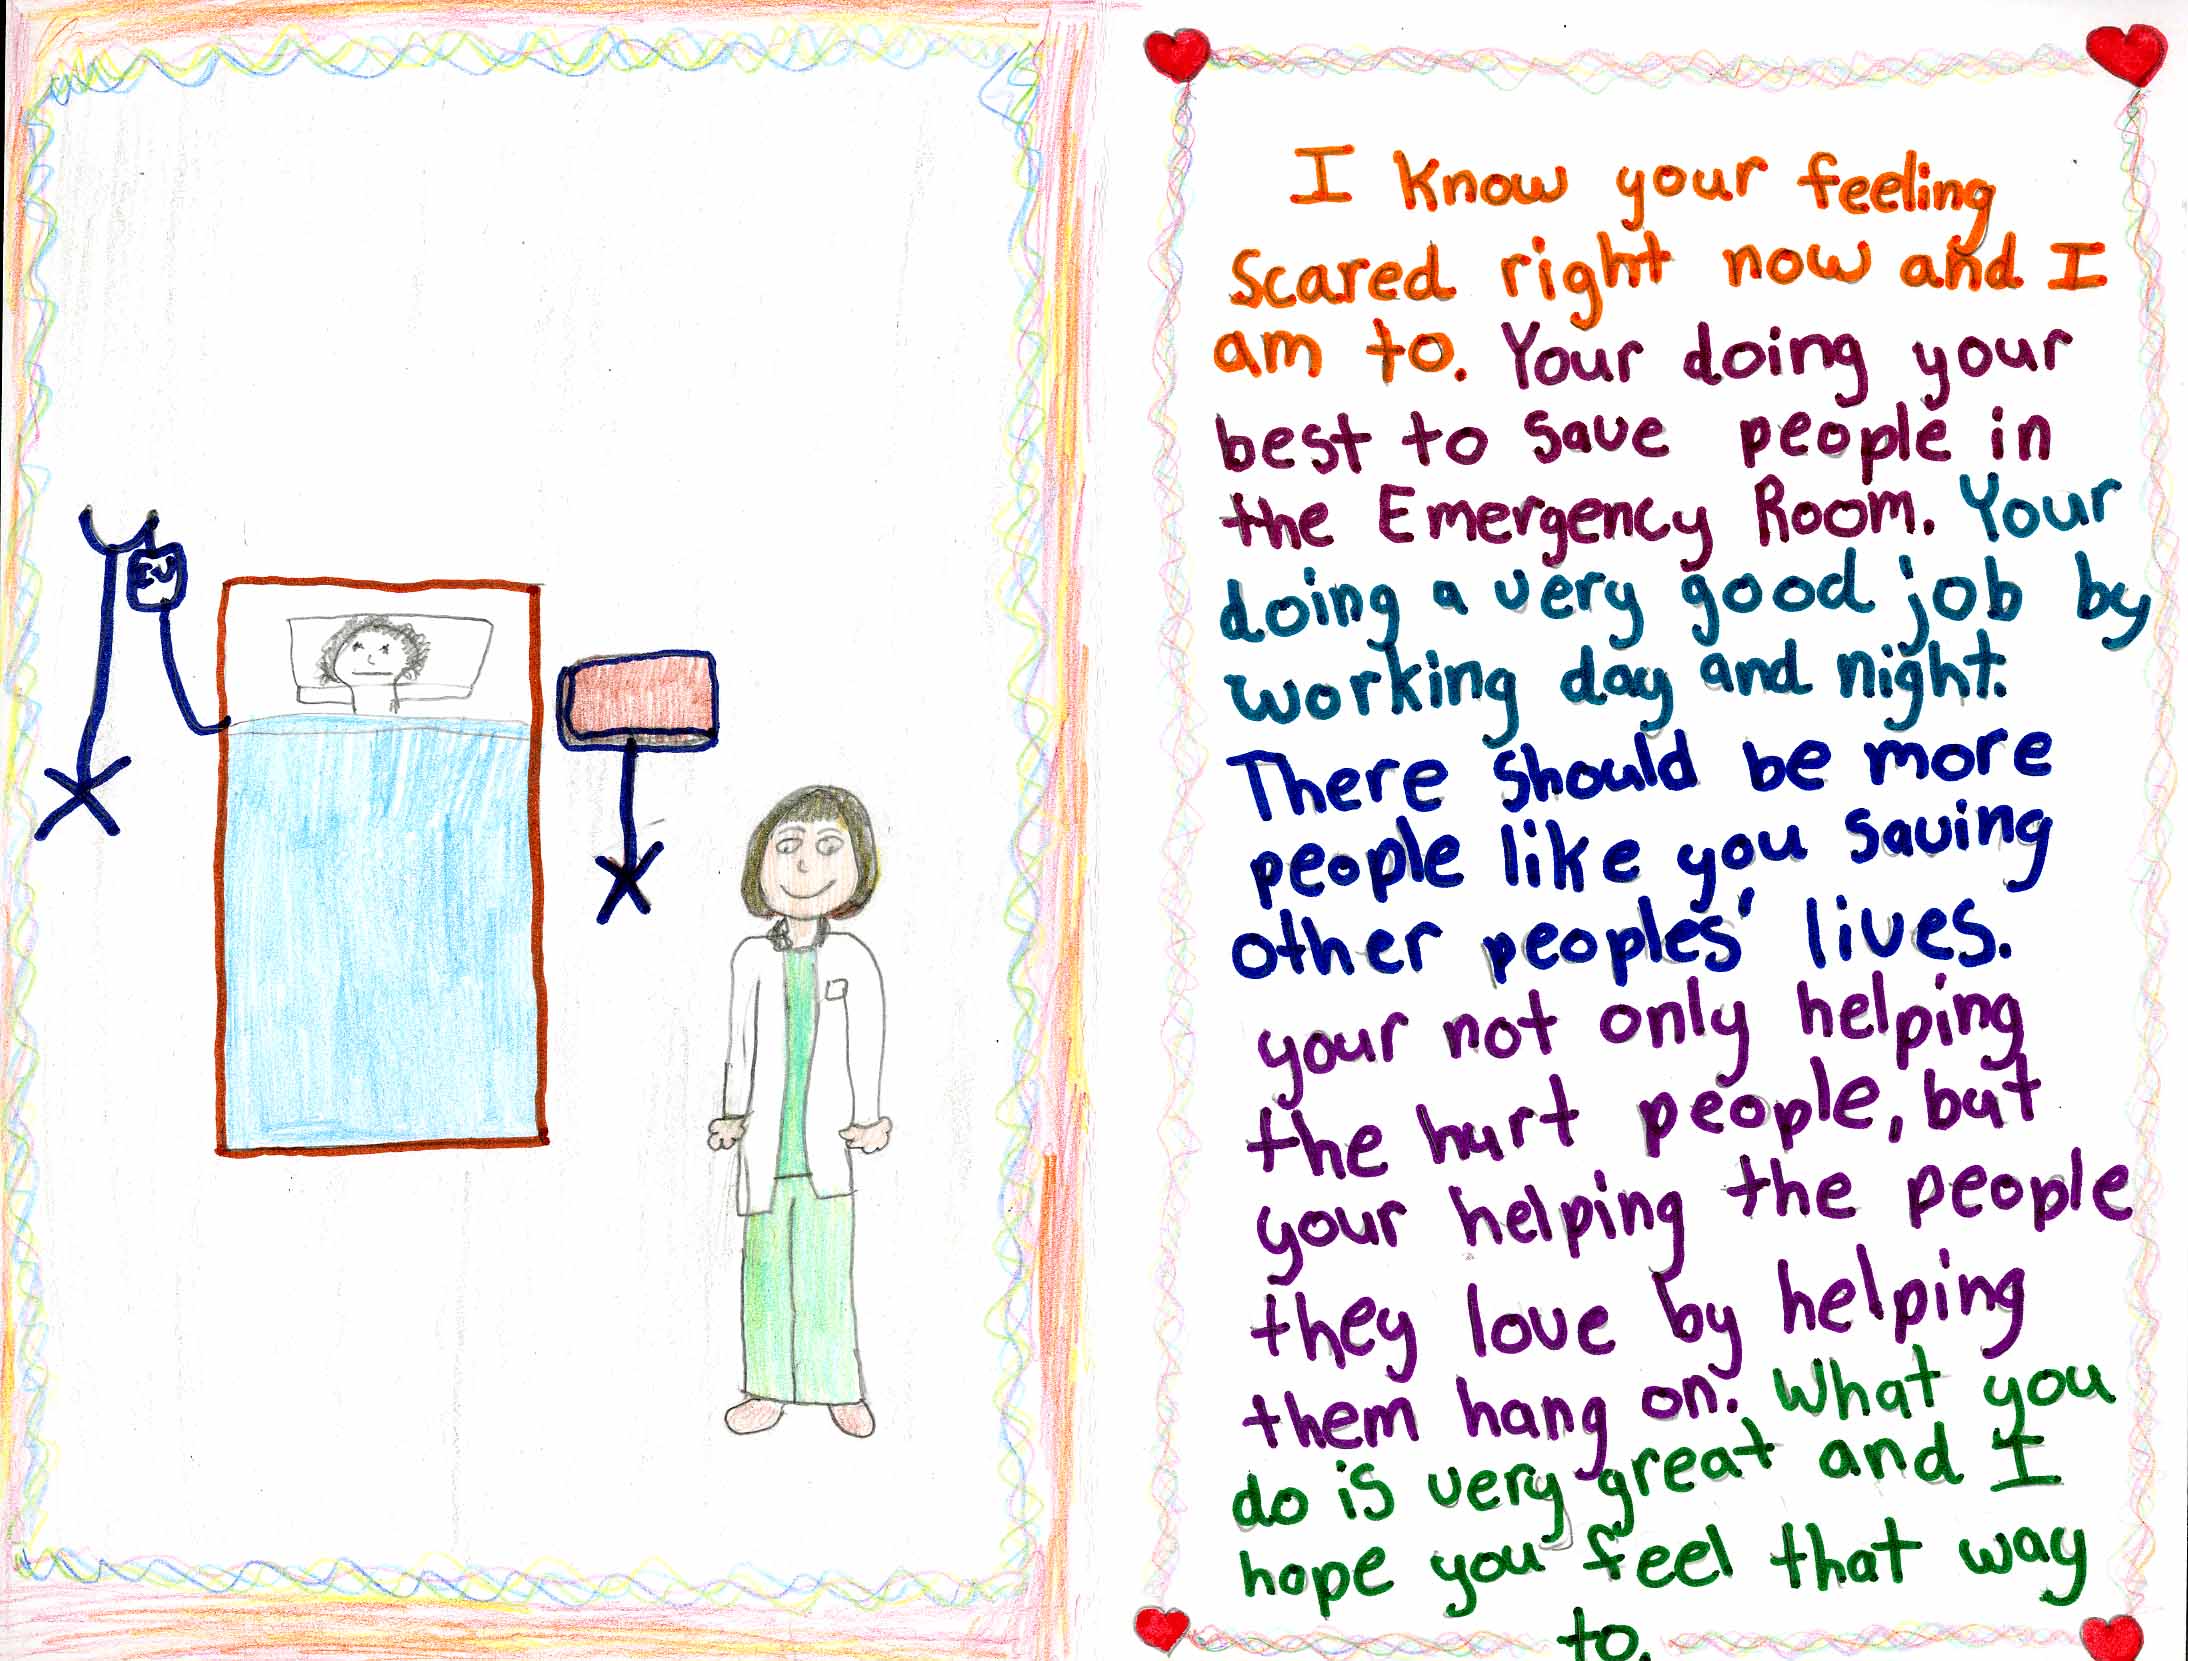 I know your feeling
scared right now and I
am to. Your doing your
best to save people in
the Emergency Room. Your
doing a very good job by
working day and night.
There should be more
people like you saving
other peoples' lives.
your not only helping
the hurt people, but
your helping the people
they love by helping
them hang on. What you
do is very great and I
hope you feel that way
to.